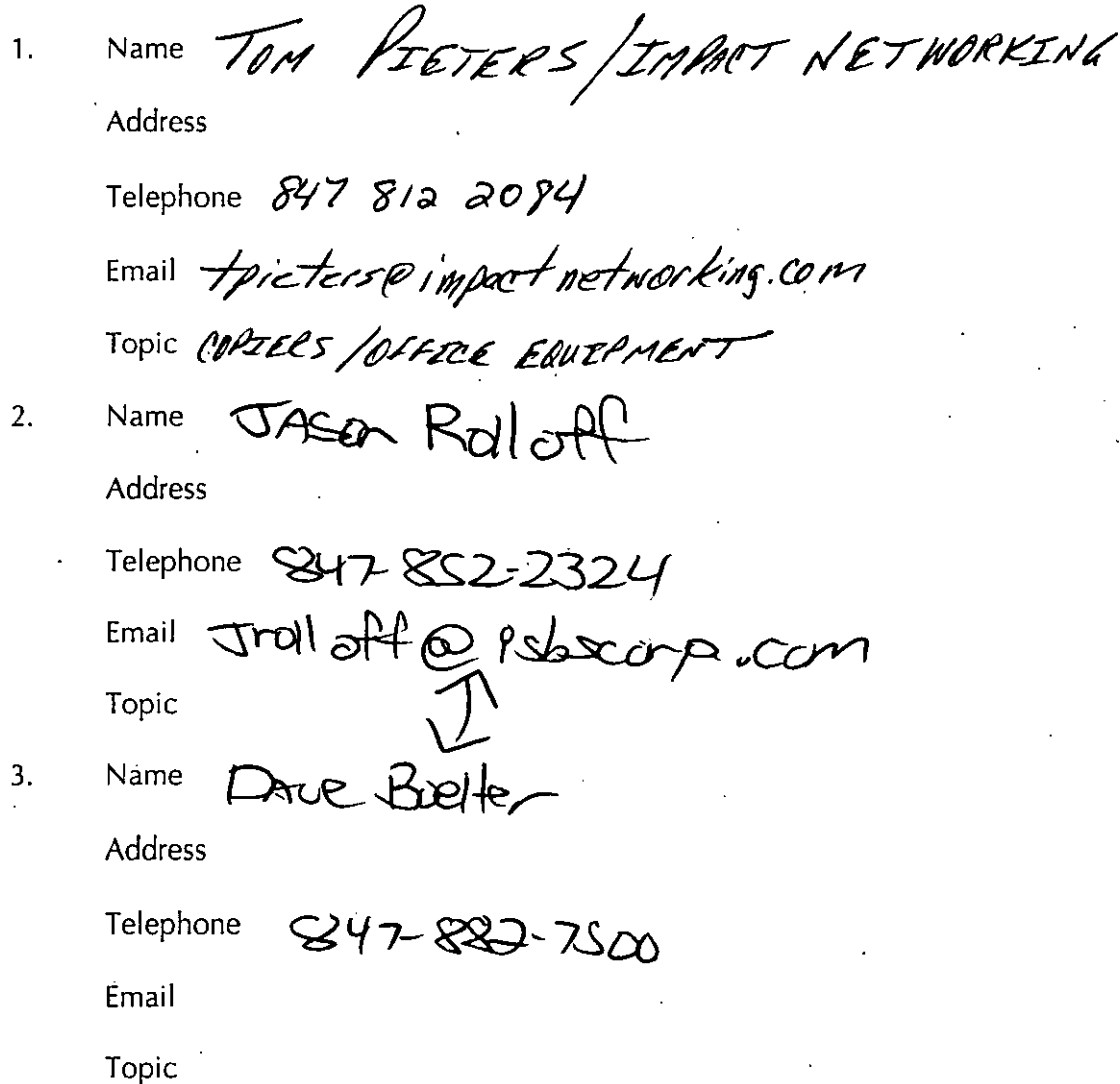 1. Name TOM PIETERS/IMPACT NETWORKING
Address
Telephone 847 812 2094
Email tpieters@impactnetworking.com
Topic COPIERS/OFFICE EQUIPMENT
2. Name JASon Rolloff
Address
Telephone 847-852-2324
Email Jrolloff@psbscorp.com
Topic
3. Name Dave Boelter
Address
Telephone 847-882-7500
Email
Topic